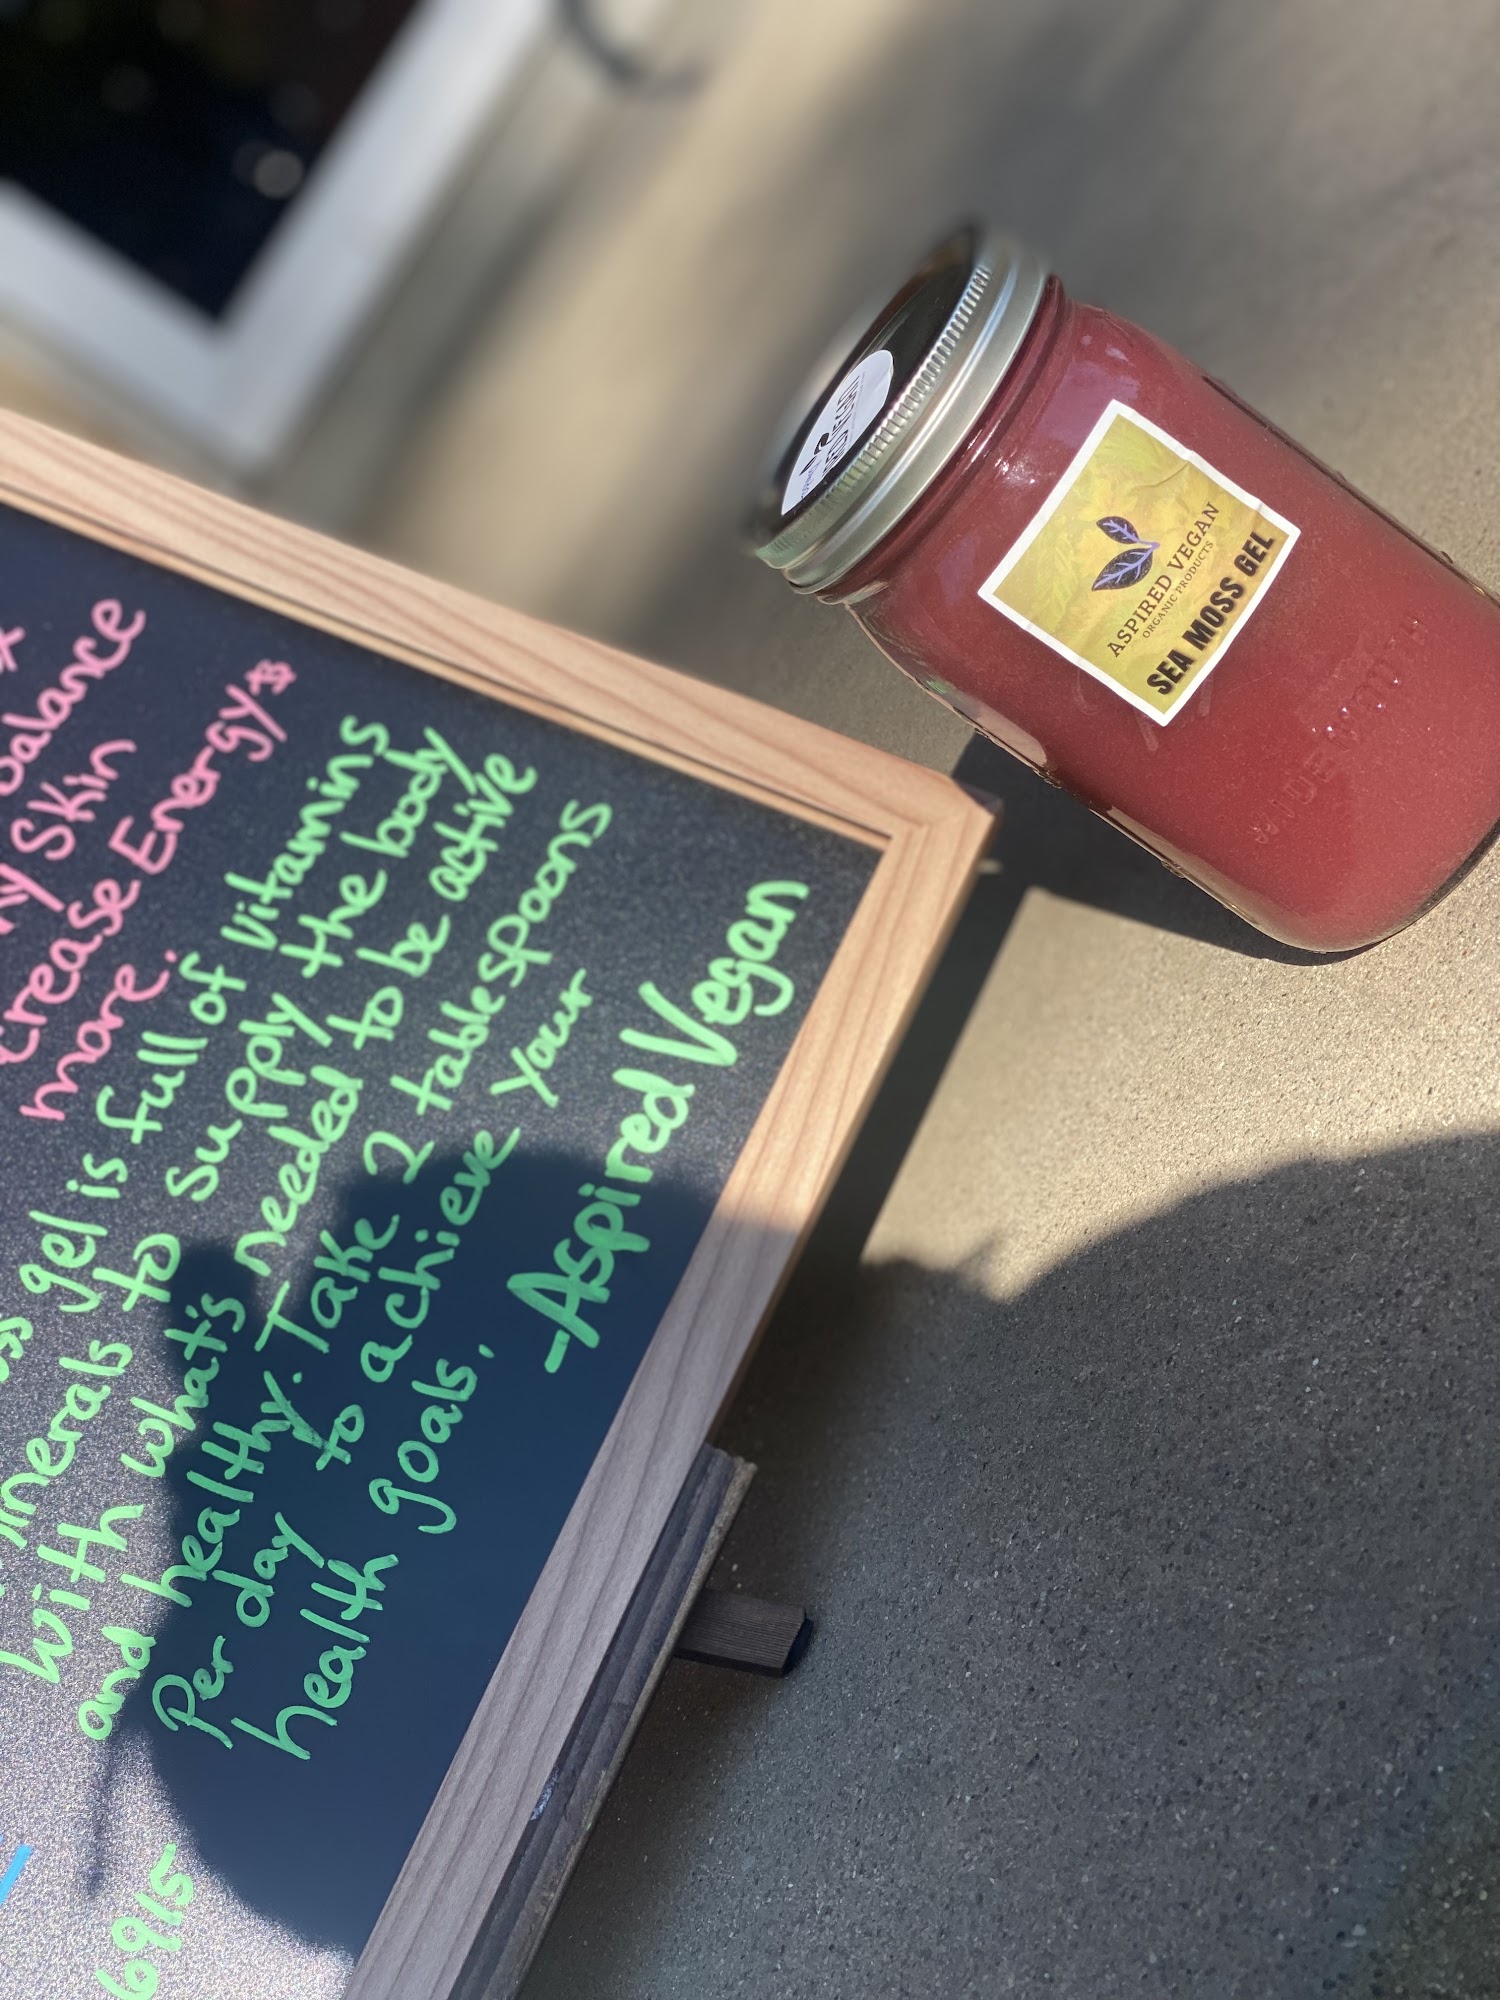 balance
Skin
Increase Energy
more.
gel is full of vitamins
minerals to supply the body
with what's needed to be active
and healthy. Take 2 tablespoons
Per day to achieve your
health goals.
-Aspired Vegan
6915
ASPIRED VEGAN
ORGANIC PRODUCTS
SEA MOSS GEL
WIDE MOUTH